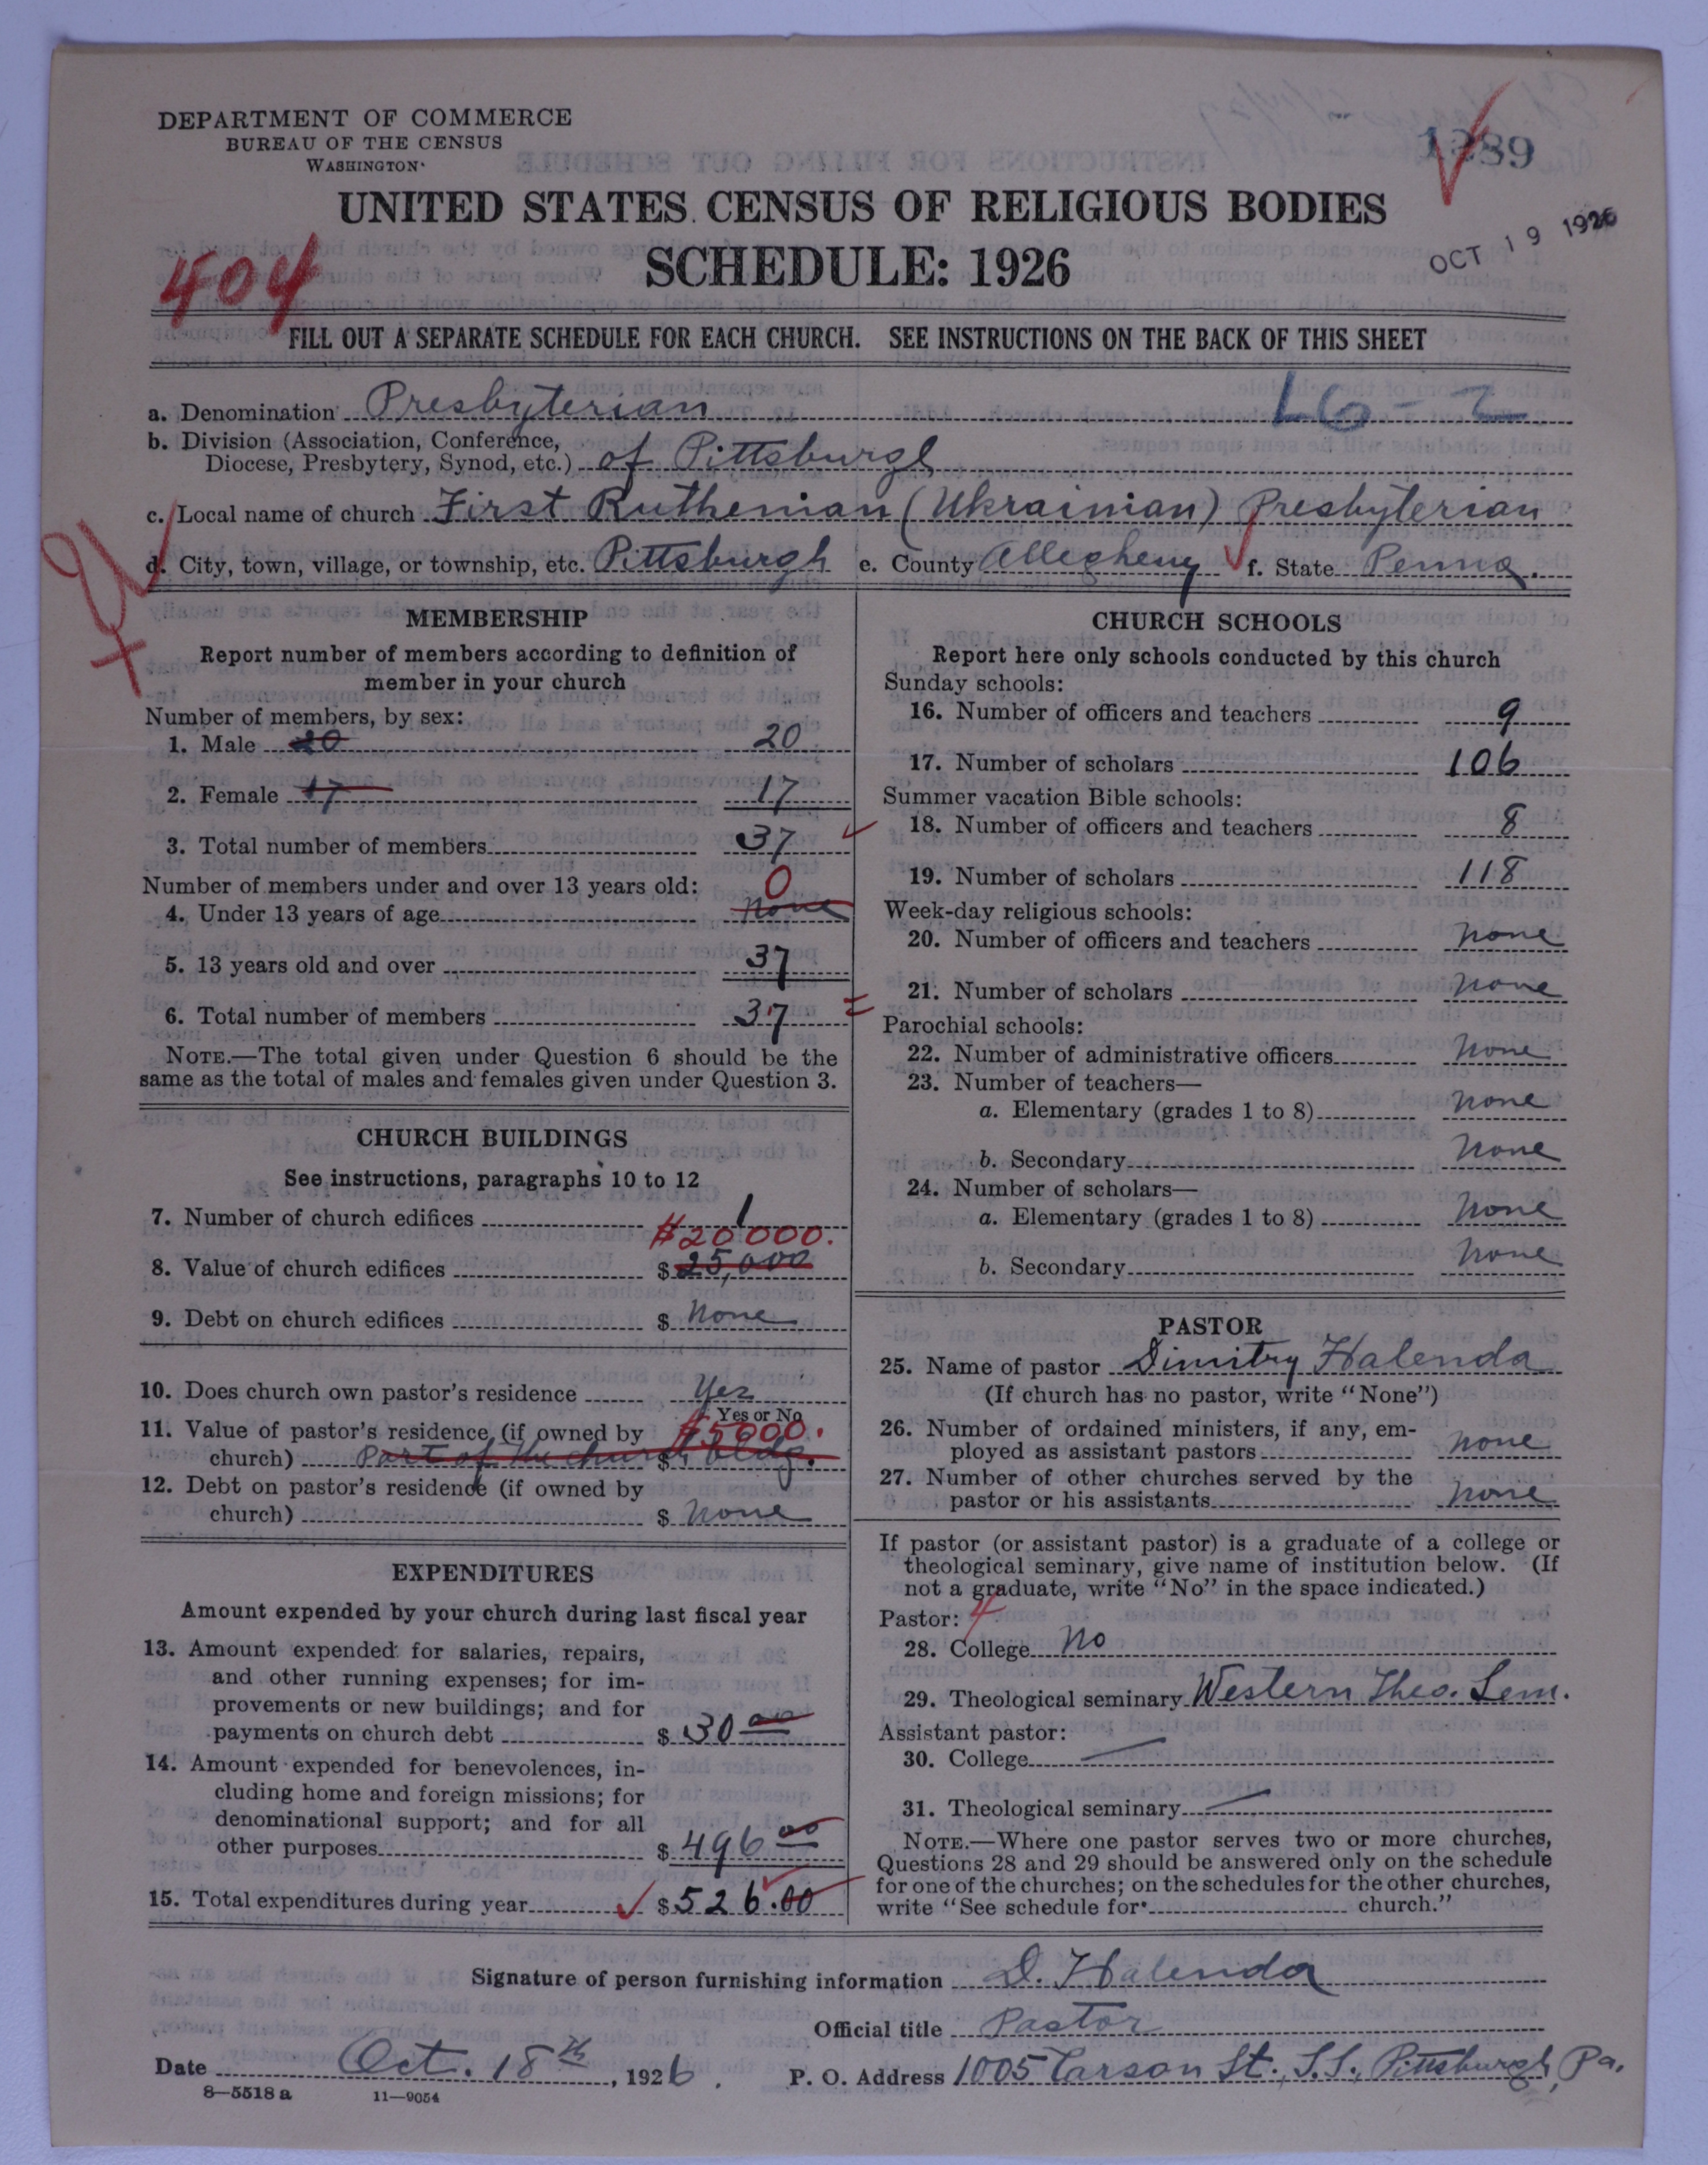 DEPARTMENT OF COMMERCE
BUREAU OF THE CENSUS
WASHINGTON
1289
UNITED STATES CENSUS OF RELIGIOUS BODIES
OCT 19 1926
SCHEDULE: 1926
404
FILL OUT A SEPARATE SCHEDULE FOR EACH CHURCH. SEE INSTRUCTIONS ON THE BACK OF THIS SHEET
a. Denomination Presbyterian 16-2
b. Division (Association, Conference,
Diocese, Presbytery, Synod, etc.) of Pittsburgh
c. Local name of church First Ruthenian (Ukrainian) Presbyterian
d. City, town, village, or township, etc. Pittsburgh e. County Allegheny f. State Penna.
MEMBERSHIP
Report number of members according to definition of
member in your church
Number of members, by sex:
1. Male 20 20
2. Female 17 17
3. Total number of members 37
Number of members under and over 13 years old: 0
4. Under 13 years of age none
5. 13 years old and over 37
6. Total number of members 37
NOTE.—The total given under Question 6 should be the
same as the total of males and females given under Question 3.
CHURCH BUILDINGS
See instructions, paragraphs 10 to 12
7. Number of church edifices 1
$20000.
8. Value of church edifices $ 25,000
9. Debt on church edifices $ None
10. Does church own pastor's residence Yes
Yes or No
11. Value of pastor's residence (if owned by $5000.
church) Part of the church $ bldg.
12. Debt on pastor's residence (if owned by
church) $ None
EXPENDITURES
Amount expended by your church during last fiscal year
13. Amount expended for salaries, repairs,
and other running expenses; for im-
provements or new buildings; and for
payments on church debt $ 30 00
14. Amount expended for benevolences, in-
cluding home and foreign missions; for
denominational support; and for all
other purposes $ 496 00
15. Total expenditures during year $ 526.00
CHURCH SCHOOLS
Report here only schools conducted by this church
Sunday schools:
16. Number of officers and teachers 9
17. Number of scholars 106
Summer vacation Bible schools:
18. Number of officers and teachers 8
19. Number of scholars 118
Week-day religious schools:
20. Number of officers and teachers None
21. Number of scholars None
Parochial schools:
22. Number of administrative officers None
23. Number of teachers—
a. Elementary (grades 1 to 8) None
b. Secondary None
24. Number of scholars—
a. Elementary (grades 1 to 8) None
b. Secondary None
PASTOR
25. Name of pastor Dimitry Halenda
(If church has no pastor, write "None")
26. Number of ordained ministers, if any, em-
ployed as assistant pastors None
27. Number of other churches served by the
pastor or his assistants None
If pastor (or assistant pastor) is a graduate of a college or
theological seminary, give name of institution below. (If
not a graduate, write "No" in the space indicated.)
Pastor: 4
28. College No
29. Theological seminary Western Theo. Sem.
Assistant pastor:
30. College
31. Theological seminary
NOTE.—Where one pastor serves two or more churches,
Questions 28 and 29 should be answered only on the schedule
for one of the churches; on the schedules for the other churches,
write "See schedule for church."
Signature of person furnishing information D. Halenda
Official title Pastor
Date Oct. 18th, 1926. P. O. Address 1005 Carson St., S.S., Pittsburgh, Pa.
8—5518a 11—9054